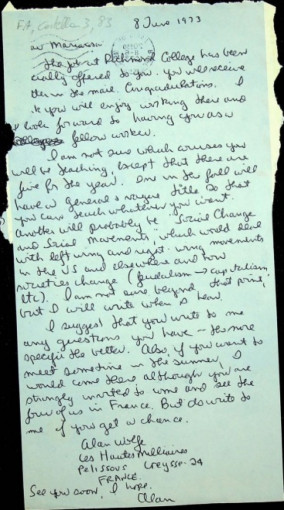 FA, cartella 3, 83
8 June 1973
Dear Mariarosa
The job at Richmond College has been
offered to you. You will receive
the mail. Congratulations. I
you will enjoy working there and
look forward to having you as a
fellow worker.
I am not sure which courses you
will be teaching, except that there are
five for the year. One in the fall will
have a general & vague title so that
you can teach whatever you want.
Another will probably be "Social Change
and Social Movements," which would deal
with left wing and right-wing movements
in the US and elsewhere and how
societies change (feudalism → capitalism,
etc). I am not sure beyond that point,
but I will write when I hear.
I suggest that you write to me
any questions you have – the more
specific the better. Also, if you want to
meet sometime in the summer, I
would come there although you are
strongly invited to come and see the
four of us in France. But do write to
me if you get a chance.
Alan Wolfe
Les Hautes
Pelissous Creysse-24
FRANCE
See you soon, I hope.
Alan